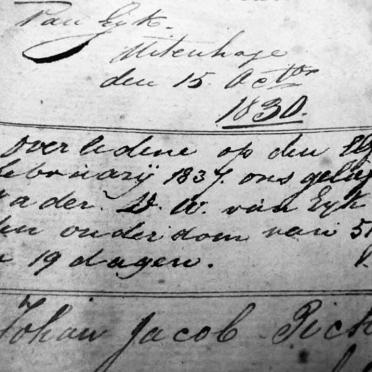 van Eyk.
Uitenhage
den 15 Octbr
1830.
Overledene op den
februarij 1837. ons
vader. D. W. van Eyk
den ouderdom van 5
n 19 dagen.
Johan Jacob